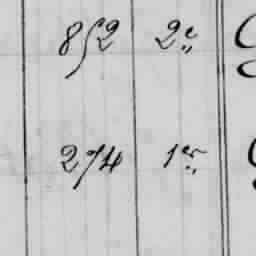 852 2e
274 1er